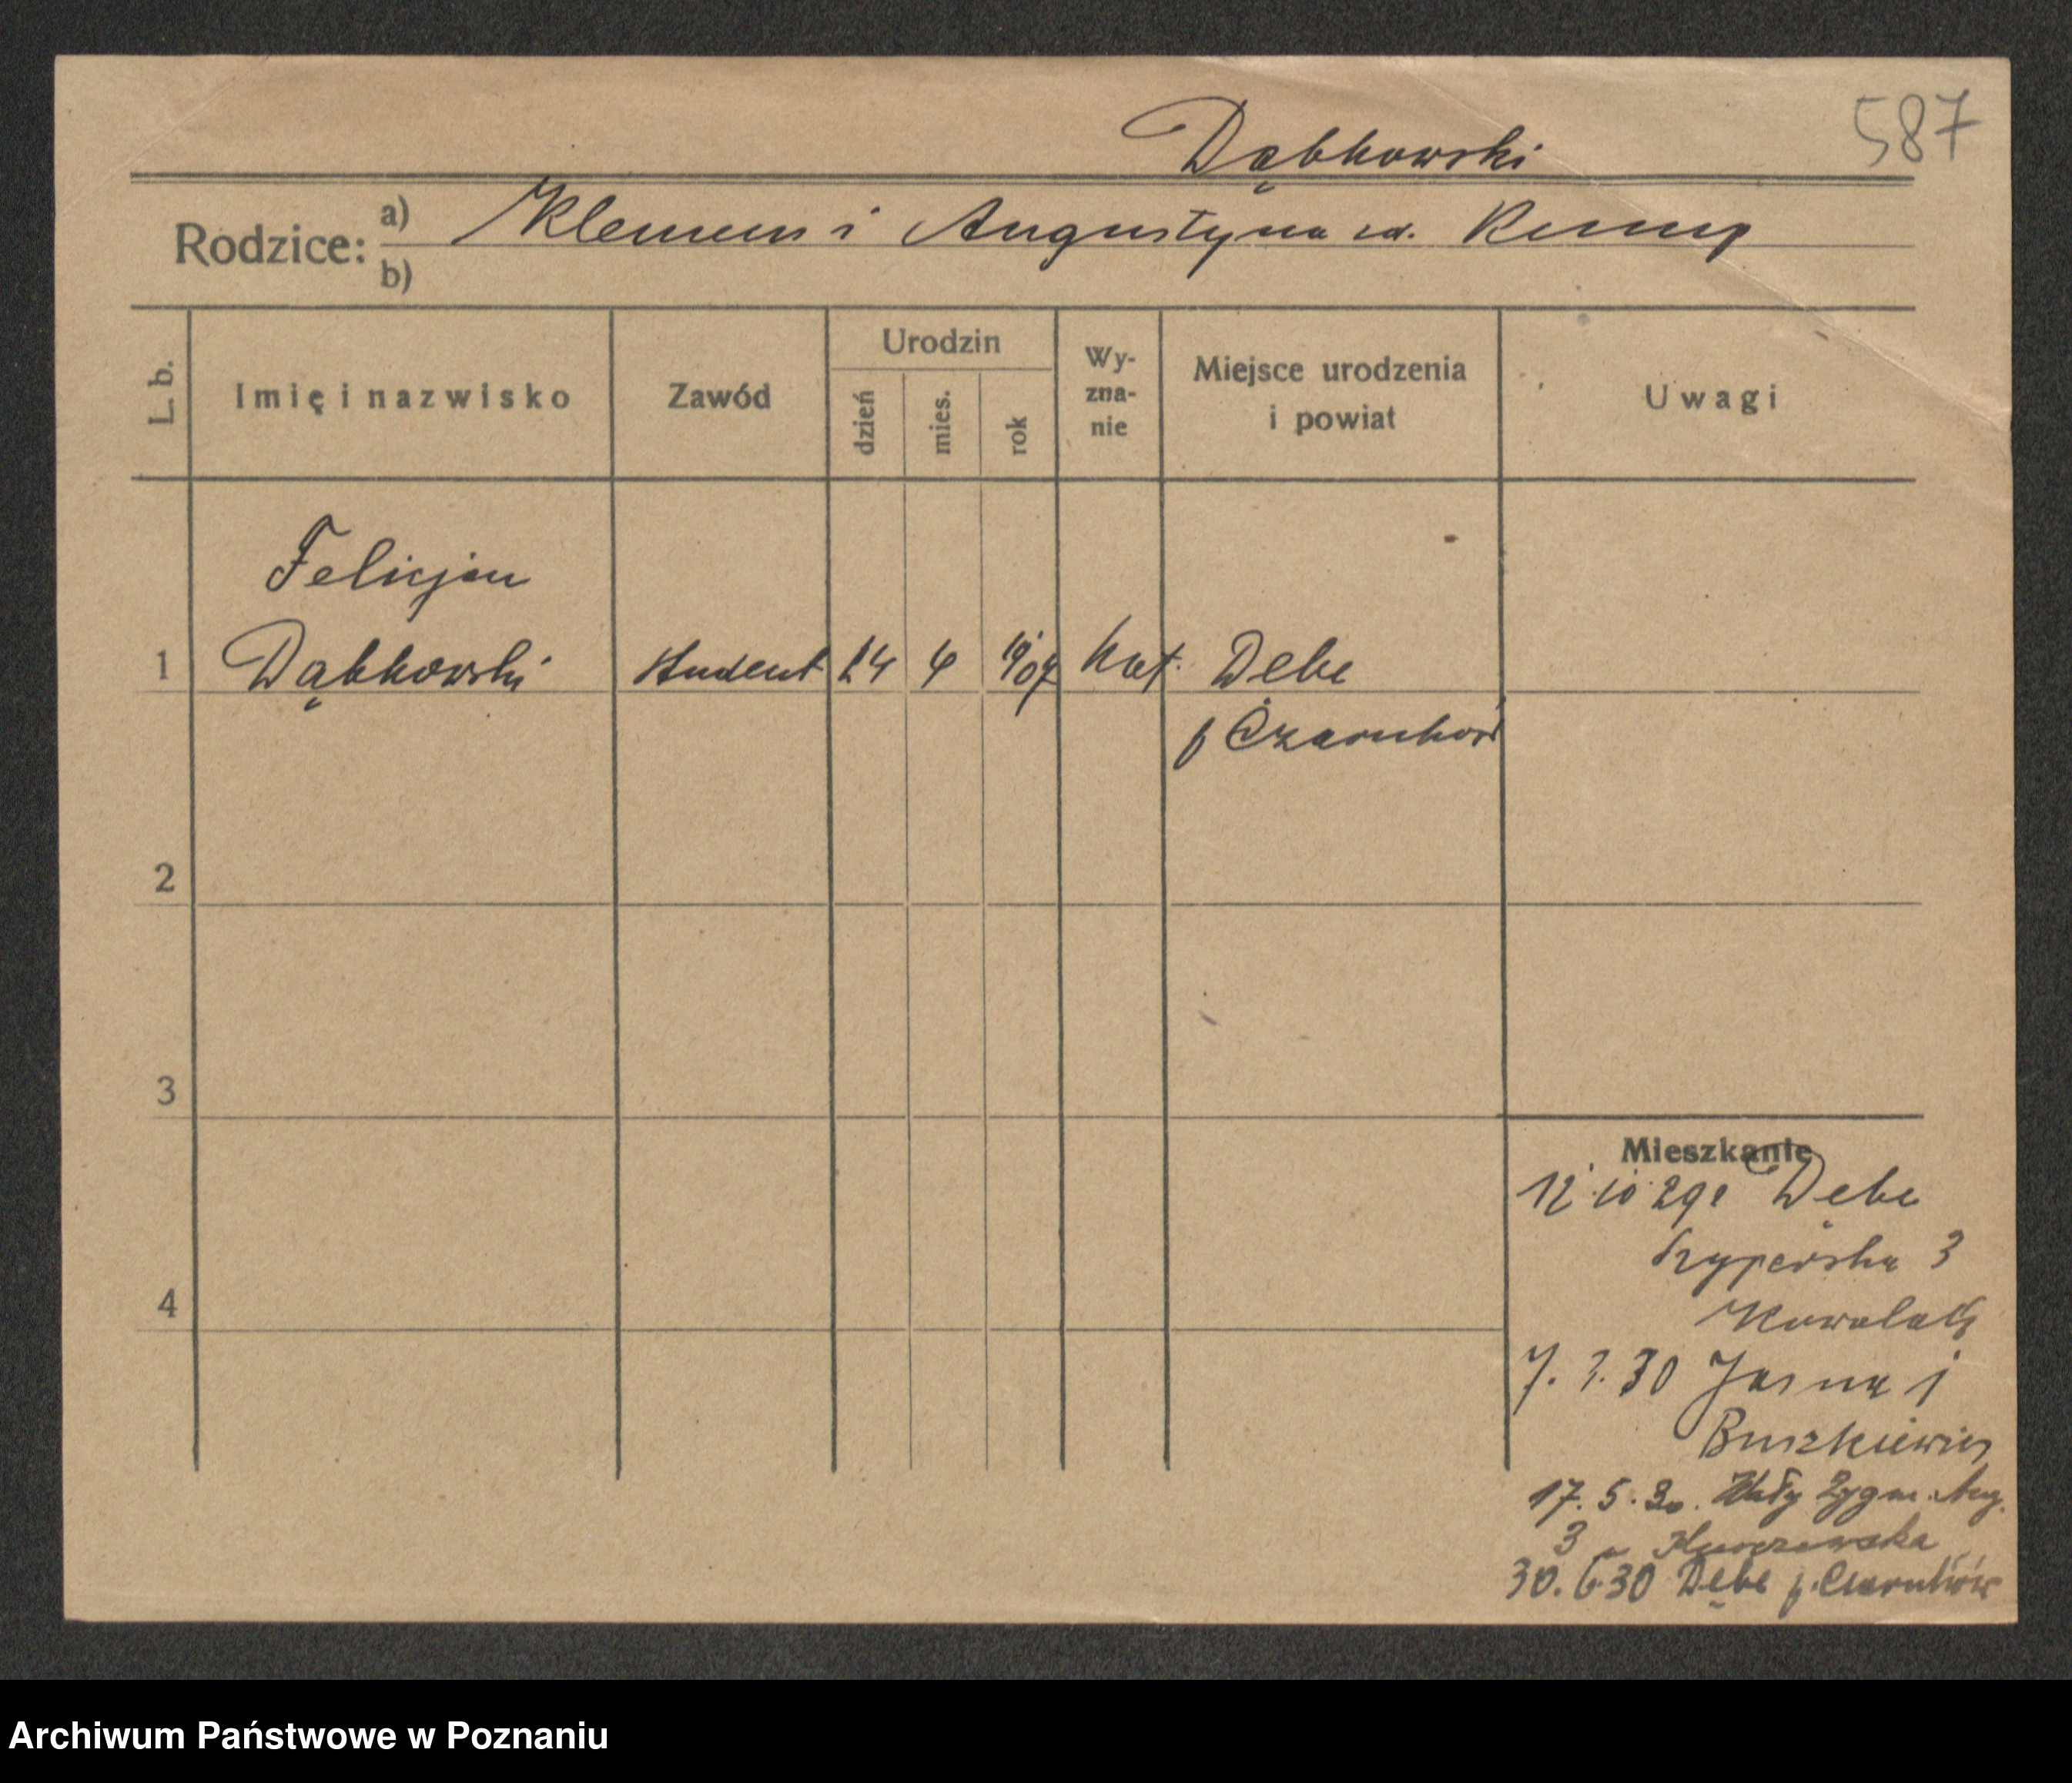 587
Dąbkowski
Rodzice: a) Klemens i Augustyna zd. Kemp
b)
L. b.
Imię i nazwisko
Zawód
Urodzin
dzień
mies.
rok
Wy-
zna-
nie
Miejsce urodzenia
i powiat
Uwagi
Felicjan
1 Dąbkowski student 24 4 1907 kat. Dębe
p Czarnków
2
3
4
Mieszkanie
12 10 29 Dębe
3
7. 30 Jasna 1
Buszkiewicz
17. 5. 30. Wały Zygm. Aug.
3
30. 6 30 Dębe p. Czarnków
Archiwum Państwowe w Poznaniu